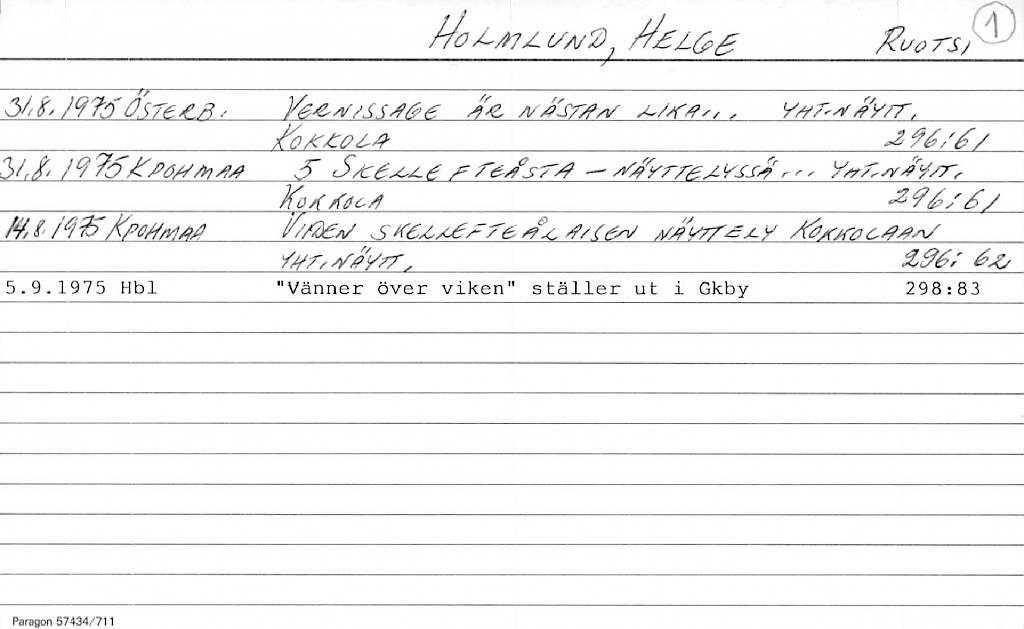 HOLMLUND, HELGE RUOTSI 1
31.8.1975 ÖSTERB. VERNISSAGE ÄR NÄSTAN LIKA... YHT.NÄYTT.
KOKKOLA 296:61
31.8.1975 KPOHMAA 5 SKELLEFTEÅSTA – NÄYTTELYSSÄ... YHT.NÄYTT.
KOKKOLA 296:61
14.8.1975 KPOHMAA VIIDEN SKELLEFTEÅLAISEN NÄYTTELY KOKKOLAAN
YHT.NÄYTT. 296:62
5.9.1975 Hbl "Vänner över viken" ställer ut i Gkby 298:83
Paragon 57434/711